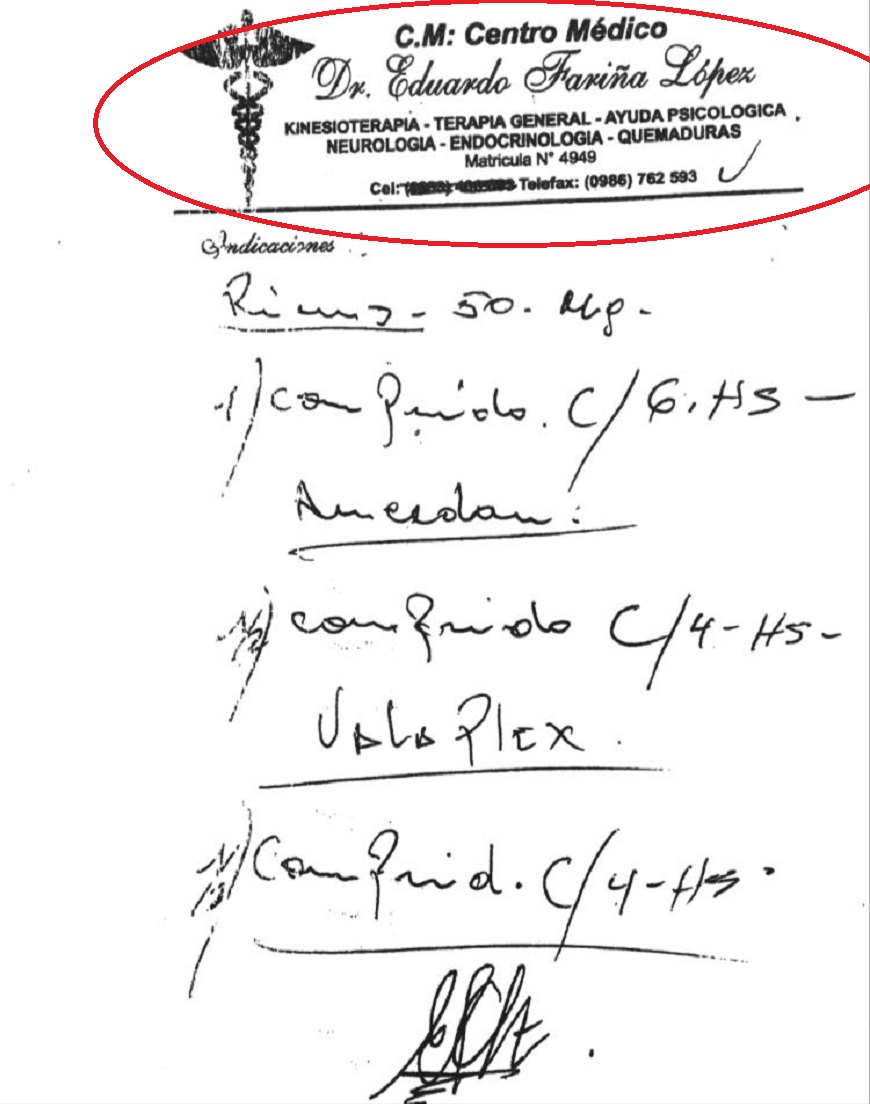 C.M: Centro Médico
Dr. Eduardo Fariña López
KINESIOTERAPIA - TERAPIA GENERAL - AYUDA PSICOLOGICA
NEUROLOGIA - ENDOCRINOLOGIA - QUEMADURAS
Matricula N° 4949
Cel: Telefax: (0986) 762 593
Indicaciones
50. Mg.
1) comprido. C/6. HS
comprido C/4-HS-
ValaPlex.
Comprid. C/4-Hs.